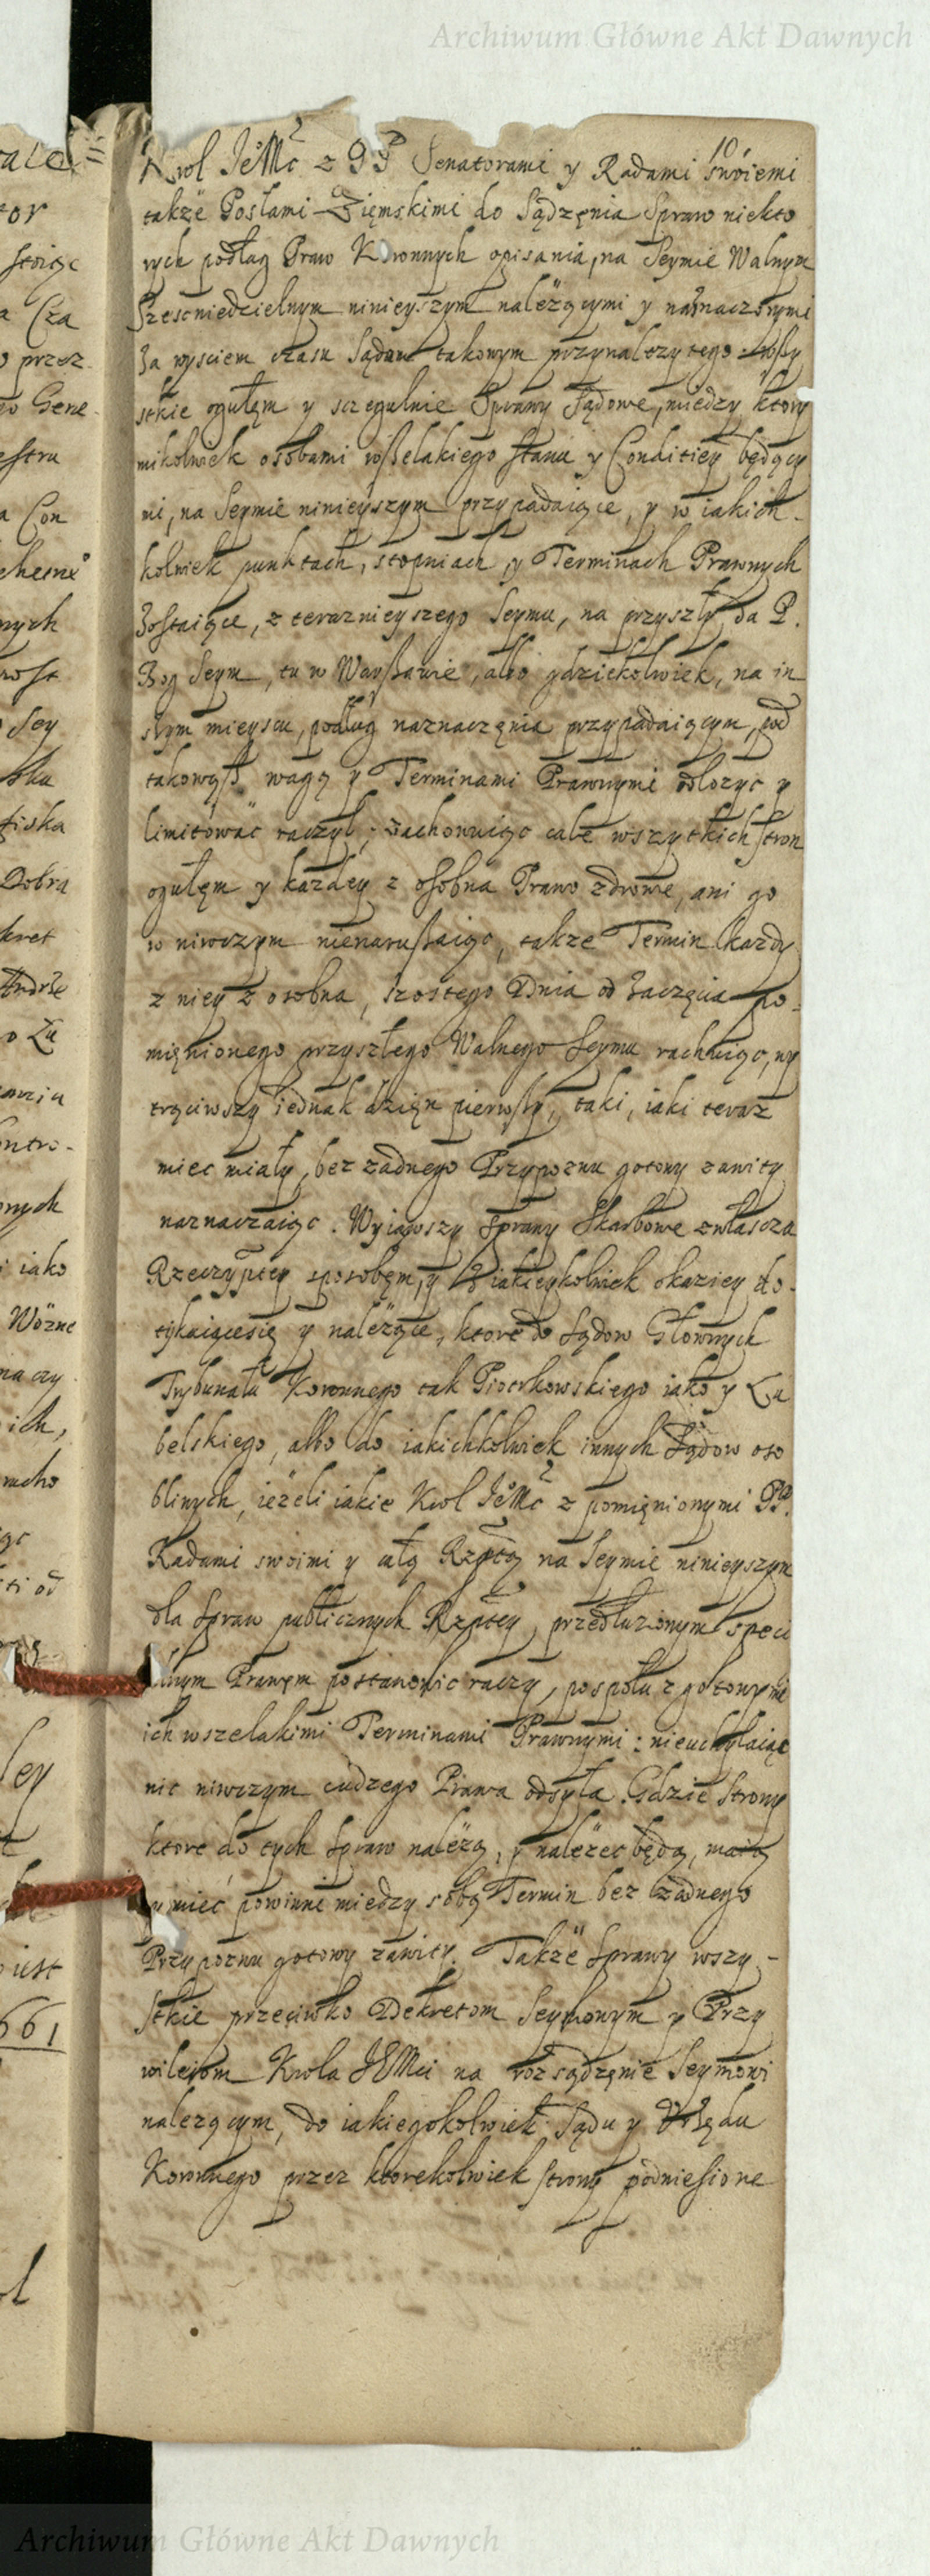 Archiwum Główne Akt Dawnych
10
Krol JeMc z PP Senatorami y Radami swoiemi
takze Posłami Zięmskimi do Sądzęnia Spraw niekto
rych podług Praw Koronnych opisania, na Seymie Walnym
Szescniedzielnym ninieyszym nalezącymi y naznaczonymi
Za wysciem czasu Sądom takowym przynalezytego wszy
stkie ogułęm y sczegulnie Sprawy Sądowe, między ktory
mikolwiek osobami wszelakiego stanu y Conditiey będący
mi, na Seymie ninieyszym przypadaiące, y w iakich-
kolwiek punktach, stopniach, y Terminach Prawnych
Zostaiące, z teraznieyszego Seymu, na przyszły, da P.
Bog Seym, tu w Warszawie, albo gdziekolwiek, na in
szym mieyscu, podług naznaczęnia przypadaiącym, pod
takowąsz wagą y Terminami Prawnymi odłozyc y
limitowac raczył; zachowuiąc całe wszytkich stron
ogułęm y kazdey z osobna Prawo zdrowe, ani go
w niwczym nienaruszaiąc, takze Termin kazdy
z niey z osobna, szostego Dnia od Zaczęcia po-
mięnionego przyszłego Walnego Seymu rachuiąc, wy
trąciwszy iednak dzięn pierwszy, taki, iaki teraz
miec miały, bez zadnego Przypozwu gotowy zawity
naznaczaiąc. Wyiąwszy Sprawy Skarbowe zwłascza
Rzeczyptey sposobęm, y z iakieykolwiek okaziey do-
tykaiącesię y nalezące, ktore do Sądow Głownych
Trybunału Koronnego tak Piotrkowskiego iako y Lu
belskiego, albo do iakichkolwiek innych Sądow oso
bliwych, iezeli iakie Krol JeMc z pomięnionymi PP.
Radami swoimi y całą Rzptą na Seymie ninieyszym
dla Spraw publicznych Rzptey, przedłuzonym speci
alnym Prawęm postanowic raczy, pospołu z gotowymi
ich wszelakimi Terminami Prawnymi: nieuchylaiąc
nic niwczym cudzego Prawa odsyła. Gdzie strony
ktore do tych Spraw nalezą, y nalezec będą, maią
y miec powinni miedzy sobą Termin bez zadnego
Przypozwu gotowy zawity. Takze Sprawy wszy-
stkie przeciwko Dekretom Seymowym y Przy
wileiom Krola JEMci na rozsądzęnie Seymowi
nalezącym, do iakiegokolwiek Sądu y Urzędu
Koronnego przez ktorekolwiek strony podniesione
Archiwum Główne Akt Dawnych